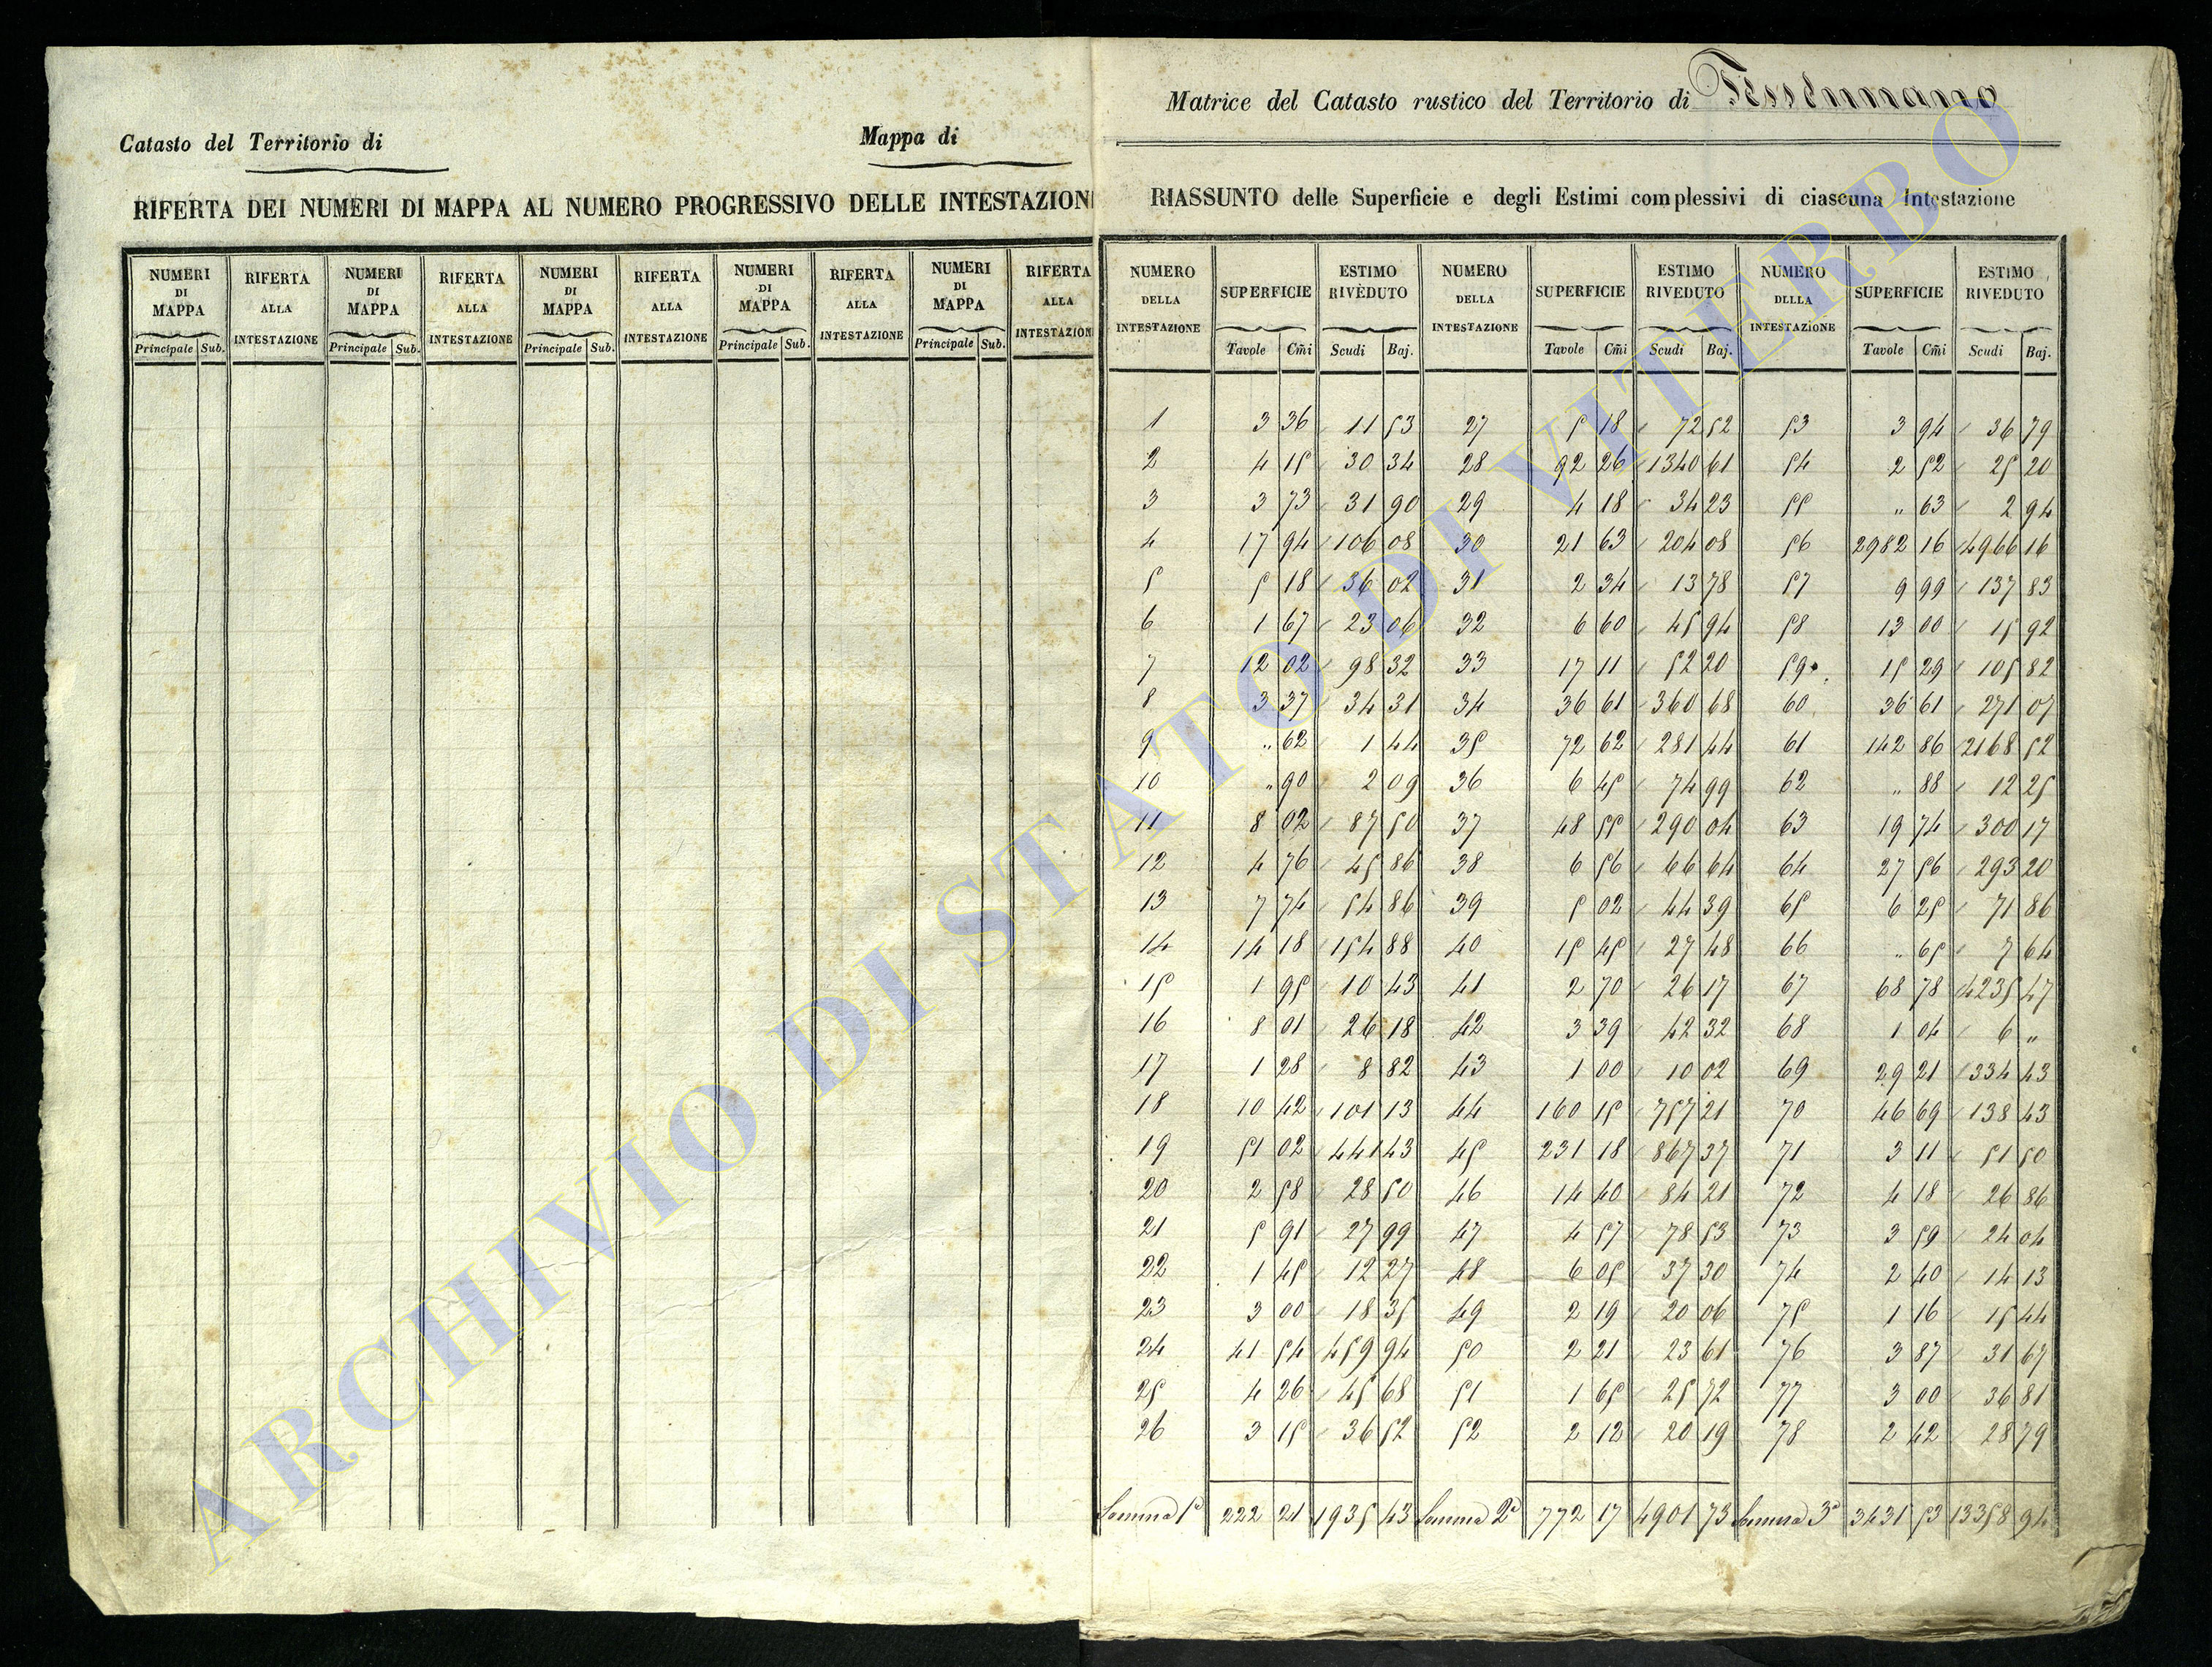 Catasto del Territorio di
Mappa di
RIFERTA DEI NUMERI DI MAPPA AL NUMERO PROGRESSIVO DELLE INTESTAZION
NUMERI DI MAPPA RIFERTA ALLA INTESTAZIONE NUMERI DI MAPPA RIFERTA ALLA INTESTAZIONE NUMERI DI MAPPA RIFERTA ALLA INTESTAZIONE NUMERI DI MAPPA RIFERTA ALLA INTESTAZIONE NUMERI DI MAPPA RIFERTA ALLA INTESTAZION
Principale Sub. Principale Sub. Principale Sub. Principale Sub. Principale Sub.
Matrice del Catasto rustico del Territorio di
RIASSUNTO delle Superficie e degli Estimi complessivi di ciascuna Intestazione
NUMERO DELLA INTESTAZIONE SUPERFICIE ESTIMO RIVEDUTO NUMERO DELLA INTESTAZIONE SUPERFICIE ESTIMO RIVEDUTO NUMERO DLLLA INTESTAZIONE SUPERFICIE ESTIMO RIVEDUTO
Tavole Cm̃i Scudi Baj. Tavole Cm̃i Scudi Baj. Tavole Cm̃i Scudi Baj.
1 3 36 11 53 27 5 18 72 52 53 3 94 36 79
2 4 15 30 34 28 92 26 1340 61 54 2 52 25 20
3 3 73 31 90 29 4 18 34 23 55 " 63 2 94
4 17 94 106 08 30 21 63 204 08 56 2982 16 4966 16
5 5 18 36 02 31 2 34 13 78 57 9 99 137 83
6 1 67 23 06 32 6 60 45 94 58 13 00 15 92
7 12 02 98 32 33 17 11 52 20 59 15 29 105 82
8 3 37 34 31 34 36 61 360 68 60 36 61 271 07
9 " 62 1 44 35 72 62 281 44 61 142 86 2168 52
10 " 90 2 09 36 6 45 74 99 62 " 88 12 25
11 8 02 87 50 37 48 55 290 04 63 19 74 300 17
12 4 76 45 86 38 6 56 66 64 64 27 56 293 20
13 7 74 54 86 39 5 02 44 39 65 6 25 71 86
14 14 18 154 88 40 15 45 27 48 66 " 65 7 64
15 1 95 10 43 41 2 70 26 17 67 68 78 4235 47
16 8 01 26 18 42 3 39 42 32 68 1 04 6 "
17 1 28 8 82 43 1 00 10 02 69 29 21 334 43
18 10 42 101 13 44 160 15 757 21 70 46 69 138 43
19 51 02 441 43 45 231 18 867 37 71 3 11 51 50
20 2 58 28 50 46 14 40 84 21 72 4 18 26 86
21 5 91 27 99 47 4 57 78 53 73 3 59 24 04
22 1 45 12 27 48 6 05 37 30 74 2 40 14 13
23 3 00 18 35 49 2 19 20 06 75 1 16 15 44
24 41 54 459 94 50 2 21 23 61 76 3 87 31 67
25 4 26 45 68 51 1 65 25 72 77 3 00 36 81
26 3 15 36 52 52 2 12 20 19 78 2 42 28 79
Somma 1ª 222 21 1935 43 Somma 2ª 772 17 4901 73 Somma 3ª 3431 53 13358 94
ARCHIVIO DI STATO DI VITERBO